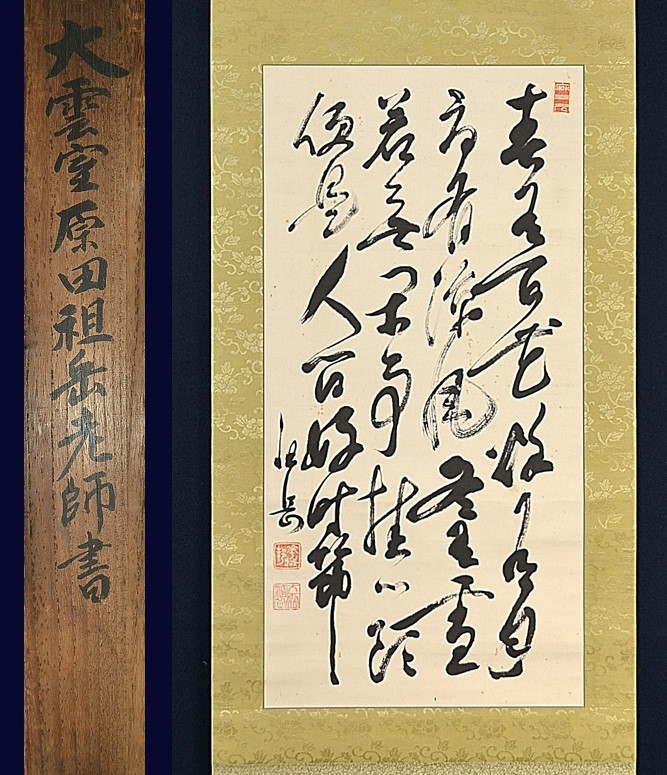 大雲室原田祖岳老師書
春有百花秋有月
夏有涼風冬有雪
若無閑事挂心頭
便是人間好時節
祖岳